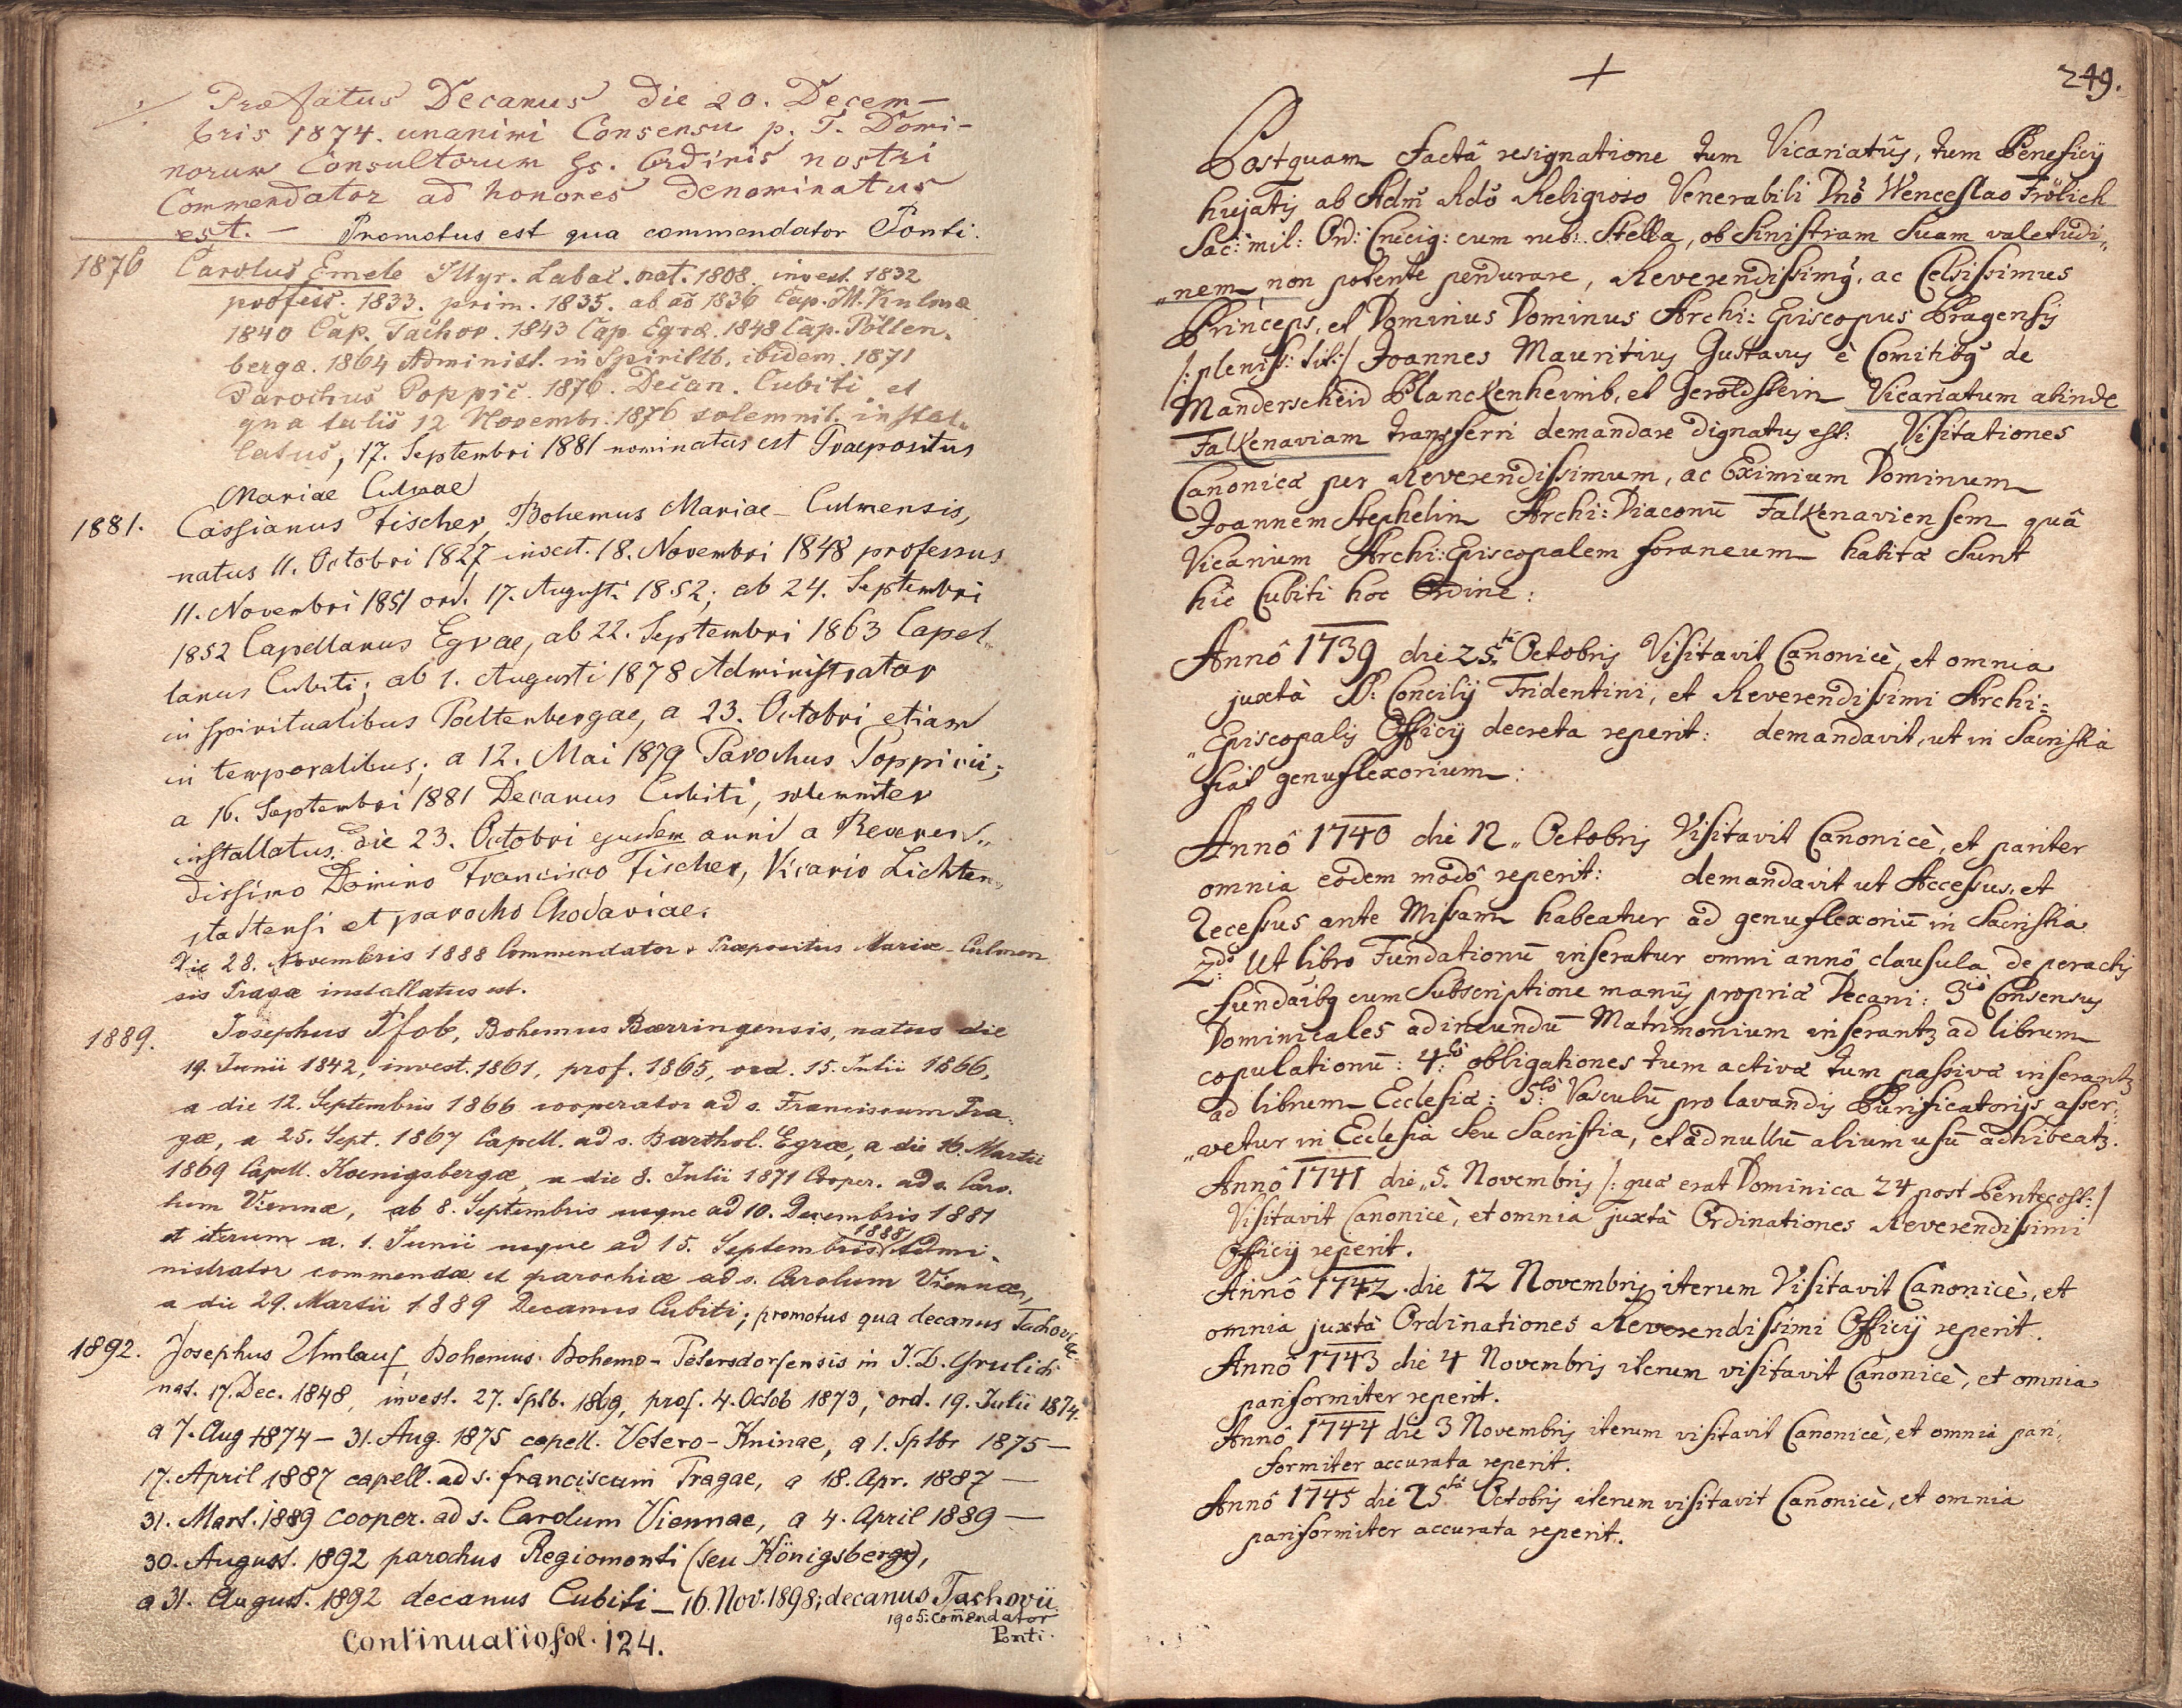 Præfatus Decanus die 20. Decem-
bris 1874. unanimi Consensu p. T. Domi-
norum Consultorum Ss. Ordinis nostri
Commendator ad honores denominatus
est. — Promotus est qua commendator Ponti.
1876 Carolus Emele Illyr. Labac. nat. 1808. invest. 1832
profess. 1833. prim. 1835. ab aõ 1836 Cap. M. Kulmæ
1840 Cap. Tachov. 1843 Cap. Egræ. 1848 Cap. Pölten-
bergæ. 1864 Administ. in Spiritlb. ibidem. 1871
Parochus Poppic. 1876. Decan. Cubiti et
qua talis 12 Novembr. 1876 solemnit. instal-
latus, 17. Septembri 1881 nominatus est Praepositus
Mariae Culmae
1881. Cassianus Fischer, Bohemus Mariae-Culmensis,
natus 11. Octobri 1827 invest. 18. Novembri 1848 professus
11. Novembri 1851 ord. 17. Augusti 1852; ab 24. Septembri
1852 Capellanus Egrae, ab 22. Septembri 1863 Capel-
lanus Cubiti; ab 1. Augusti 1878 Administrator
in spiritualibus Poeltenbergae, a 23. Octobri etiam
in temporalibus; a 12. Mai 1879 Parochus Poppicii;
a 16. Septembri 1881 Decanus Cubiti, solemniter
installatus die 23. Octobri ejusdem anni a Reveren„
dissimo Domino Francisco Fischer, Vicario Lichten„
stadtensi et parocho Chodaviae.
Die 28. Novembris 1888 Commendator & Præpositus Mariæ-Culmen
sis Pragæ installatus est.
1889. Josephus Pfob, Bohemus Bærringensis, natus die
19. Junii 1842, invest. 1861, prof. 1865, ord. 15. Julii 1866,
a die 12. Septembris 1866 cooperator ad s. Franciscum Pra-
gæ, a 25. Sept. 1867 Capell. ad s. Barthol. Egræ, a die 16. Martii
1869 Capell. Koenigsbergæ, a die 8. Julii 1871 Cooper. ad s. Caro-
lum Viennæ, ab 8. Septembris usque ad 10. Decembris 1881
et iterum a. 1. Junii usque ad 15. Septembris 1888 Admi-
nistrator commendæ et parochiæ ad s. Carolum Viennæ,
a die 29. Martii 1889 Decanus Cubiti; promotus qua decanus Tachoviæ
1892. Josephus Umlauf, Bohemus Bohemo-Petersdorfensis in J. D. Grulich
nat. 17. Dec. 1848, invest. 27. Sptb. 1869, prof. 4. Octob 1873, ord. 19. Julii 1874.
a 7. Aug 1874 — 31. Aug. 1875 capell. Vetero-Kninae, a 1. Sptbr 1875 —
17. April 1887 capell. ad s. franciscum Pragae, a 18. Apr. 1887 —
31. Mart. 1889 cooper. ad s. Carolum Viennae, a 4. April 1889 —
30. August. 1892 parochus Regiomonti (seu Königsberge),
a 31. August. 1892 decanus Cubiti — 16. Nov. 1898; decanus Tachovii
1905: Com̄endator
Ponti.
Continuatio fol. 124.
249.
Postquam factâ resignatione tum Vicariatûs, tum Beneficij
hujatis ab Adm̃ Rdõ Religioso Venerabili Dnõ Wenceslao Frölich
Sac: mil: Ord: Crucig: cum rub: Stella, ob sinistram suam valetudi„
„nem non potente perdurare, Reverendissimq, ac Celsissimus
Princeps, et Dominus Dominus Archi: Episcopus Pragensis
/: pleniss: tit:/ Joannes Mauritius Gustavus è Comitibq de
Manderscheid Blanckenheimb, et Geroldstein Vicariatum abinde
Falkenaviam transferri demandare dignatus est: Visitationes
Canonicæ per Reverendissimum, ac Eximium Dominum
Joannem Stephelin Archi: Diaconũ Falkenaviensem quâ
Vicarium Archi: Episcopalem foraneum habitæ sunt
hic Cubiti hoc Ordine:
Annô 1739 die 25ta Octobris Visitavit Canonicè, et omnia
juxtà S. Concilij Tridentini, et Reverendissimi Archi=
„Episcopalis Officij decreta reperit: demandavit, ut in Sacristia
fiat genuflexorium:
Annô 1740 die 12„ Octobris Visitavit Canonicè, et pariter
omnia eôdem modô reperit: demandavit ut Accessus, et
Recessus ante Missam habeatur ad genuflexoriũ in Sacristia.
2do Ut libro Fundationũ inseratur omni annô clausula de peractis
fundãibq cum Subscriptione manûs propriæ Decani: 3tiò Consensus
Dominicales ad ineundũ Matrimonium inserantz ad librum
copulationũ: 4tò obligationes tum activæ tum passivæ inserantz
ad librum Ecclesiæ: 5tò Vasculũ pro lavandis Purificatorijs asser:
„vetur in Ecclesia seu Sacristia, et ad nullũ alium usũ adhibeatz.
Annô 1741 die„ 5. Novembris /: quæ erat Dominica 24 post Pentecost:/
Visitavit Canonicè, et omnia juxtà Ordinationes Reverendissimi
Officij reperit.
Annô 1742. die 12 Novembris iterum Visitavit Canonicè, et
omnia juxtà Ordinationes Reverendissimi Officij reperit.
Annô 1743 die 4 Novembris iterum visitavit Canonicè, et omnia
pariformiter reperit.
Annô 1744 die 3 Novembris iterum visitavit Canonicè, et omnia pari„
formiter accurata reperit.
Annô 1745 die 25ta Octobris iterum visitavit Canonicè, et omnia
pariformiter accurata reperit.